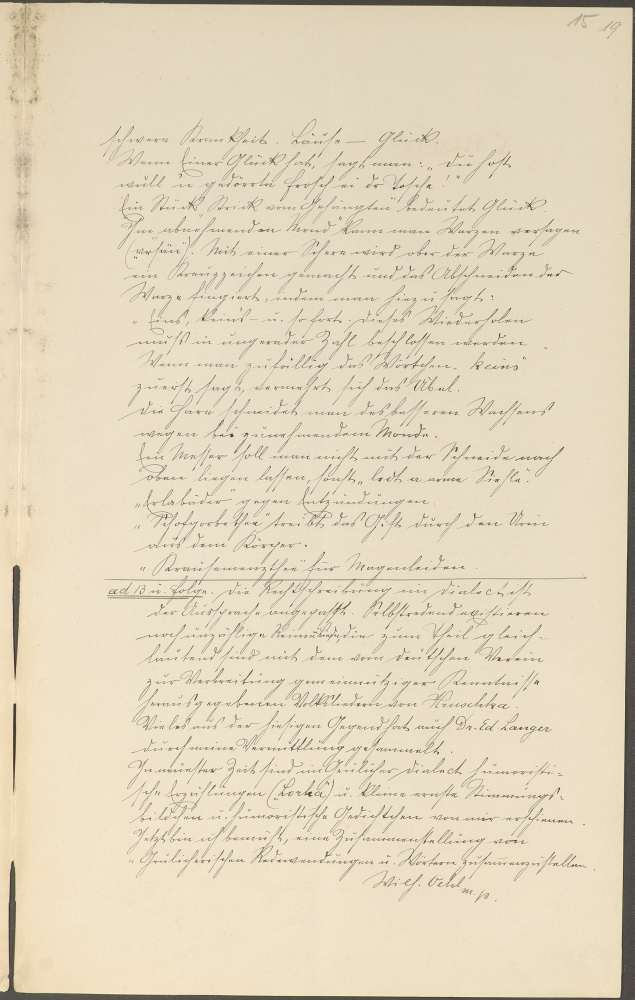 15 19
schwere Krankheit. Läuse — Glück.
Wenn Einer Glück hat, sagt man: „Du host
wull 'n gedörrta Frosch ei dr Tosche!"
Ein Stück Strick vom Gehängten bedeutet Glück.
Im abnehmenden Mond kann man Warzen versagen
Mit einer Schere wird ober der Warze
ein Kreuzzeichen gemacht und das Abschneiden der
Warze fingiert, indem man hiezu sagt:
„Eins, keins – u. so fort. Dieses Wiederholen
muß in ungerader Zahl beschlossen werden.
Wenn man zufällig das Wörtchen „keins"
zuerst sagt, vermehrt sich das Übel.
Die Haare schneidet man des besseren Wachsens
wegen bei zunehmendem Monde.
Ein Messer soll man nicht mit der Schneide nach
oben liegen lassen, sonst a arme Seele".
gegen Entzündungen.
treibt das Gift durch den Urin
aus dem Körper.
„Krausemenzthee" für Magenleiden.
ad B u. folge. Die Rechtschreibung im Dialect ist
der Aussprache angepaßt. Selbstredend existieren
noch unzählige die zum Theil gleich-
lautend sind mit dem vom deutschen Verein
zur Verbreitung gemeinnütziger Kenntnisse
herausgegebenen Volksliedern von Hruschka.
Vieles aus der hiesigen Gegend hat auch Dr. Ed Langer
durch meine Vermittlung gesammelt.
In neuester Zeit sind in Grulicher Dialect humoristi-
sche Erzählungen u. kleine ernste Stimmungs-
bildchen u. humoristische Gedichtchen von mir erschienen.
Jetzt bin ich bemüht, eine Zusammenstellung von
Grulicherischen Redewendungen u. Wörtern zusammenzustellen.
Wilh. Oehl m. p.